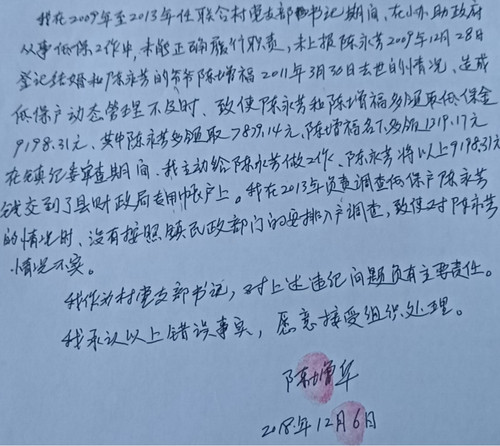 我在2009年至2013年任联合村党支部书记期间,在协助政府
从事低保工作中,未能正确履行职责,未上报陈永芳2009年12月28日
登记结婚和陈永芳的爷爷陈增福2011年3月30日去世的情况,造成
低保户动态管理不及时、致使陈永芳和陈增福多领取低保金
9198.31元、其中陈永芳多领取7879.14元,陈增福名下多领1319.17元
在镇纪委审查期间、我主动给陈永芳做工作、陈永芳将以上9198.31元
钱交到了县财政局专用帐户上。我在2013年负责调查低保户陈永芳
的情况时、没有按照镇民政部门的安排入户调查,致使对陈永芳
情况不实。
我作为村党支部书记,对上述违纪问题负有主要责任。
我承认以上错误事实,愿意接受组织处理。
陈增华
2018年12月6日